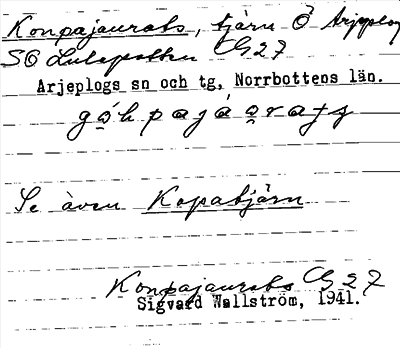 Konpajaurats, tjärn Ö Arjeplog
SO Lulepotten C27
Arjeplogs sn och tg, Norrbottens län.
gòh pajáọrats
Se även Kopatjärn
Konpajaurats C27
Sigvard Wallström, 1941.